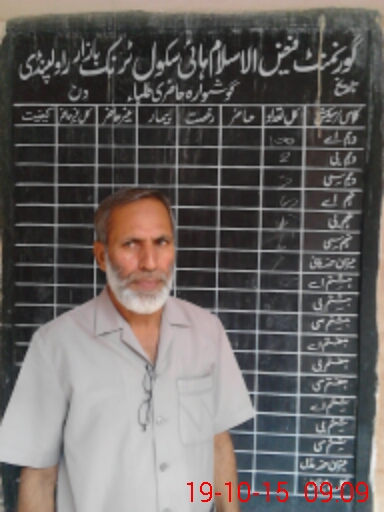 گورنمنٹ فیض الاسلام ہائی سکول ٹرنک بازار راولپنڈی
تاریخ گوشوارہ حاضری طلباء دن
کلاس / سیکشن کل تعداد حاضر رخصت بیمار غیر حاضر کل غیر حاضر کیفیت
دہم اے
دہم بی
دہم سی
نہم اے
نہم بی
نہم سی
میزان حصہ ہائی
ہشتم اے
ہشتم بی
ہشتم سی
ہفتم اے
ہفتم بی
ہفتم سی
ششم اے
ششم بی
ششم سی
میزان حصہ مڈل
19-10-15 09:09